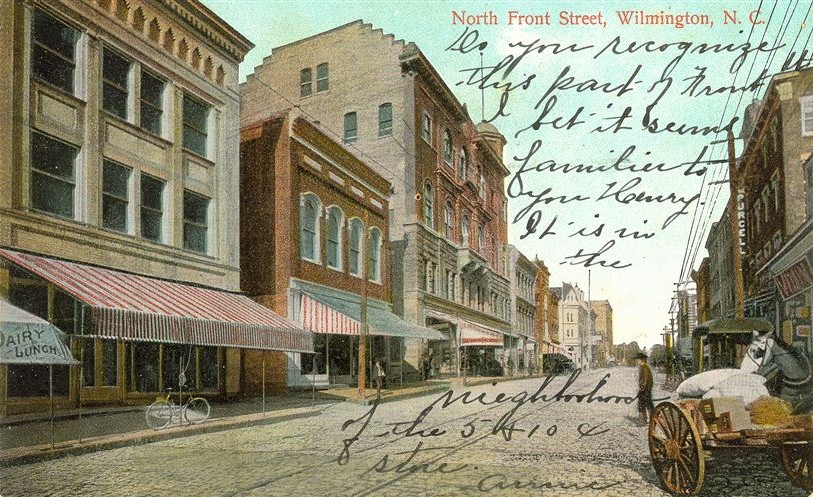 North Front Street, Wilmington, N. C.
Do you recognize
this part of Front St
I bet it seems
familier to
you Henry.
It is in
the
nieghborhood
of the 5 & 10 ¢
store.
DAIRY
LUNCH